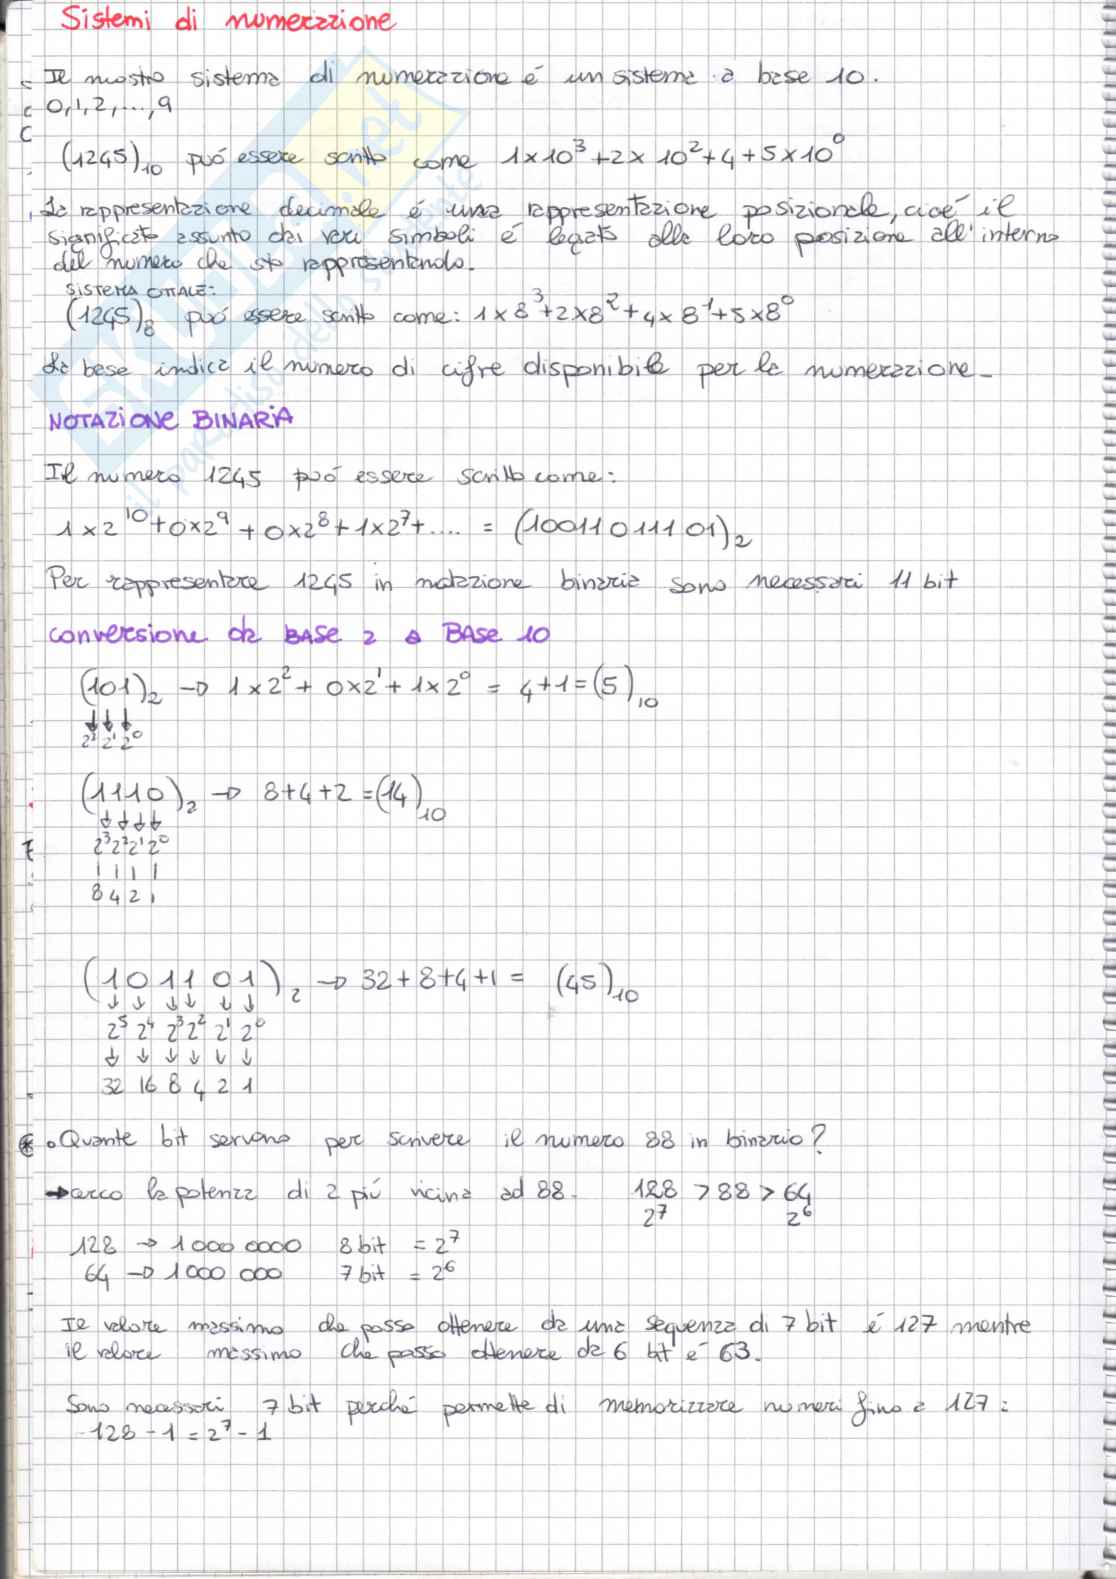 Sistemi di numerazione
Il nostro sistema di numerazione é un sistema a base 10.
0,1,2,...,9
(1245)₁₀ puó essere scritto come 1×10³+2×10²+4+5×10⁰
La rappresentazione decimale é una rappresentazione posizionale, cioé il
significato assunto dai vari simboli é legato alla loro posizione all'interno
del numero che sto rappresentando.
SISTEMA OTTALE:
(1245)₈ puó essere scritto come: 1×8³+2×8²+4×8¹+5×8⁰
La base indica il numero di cifre disponibile per la numerazione.
NOTAZIONE BINARIA
Il numero 1245 puó essere scritto come:
1×2¹⁰+0×2⁹+0×2⁸+1×2⁷+.... = (10011011101)₂
Per rappresentare 1245 in notazione binaria sono necessari 11 bit
conversione da BASE 2 a BASE 10
(101)₂ → 1×2²+0×2¹+1×2⁰ = 4+1=(5)₁₀
↓↓↓
2² 2¹ 2⁰
(1110)₂ → 8+4+2=(14)₁₀
↓↓↓↓
2³2²2¹2⁰
| | | |
8 4 2 1
(101101)₂ → 32+8+4+1= (45)₁₀
↓ ↓ ↓ ↓ ↓ ↓
2⁵ 2⁴ 2³ 2² 2¹ 2⁰
↓ ↓ ↓ ↓ ↓ ↓
32 16 8 4 2 1
• Quante bit servono per scrivere il numero 88 in binario?
→ cerco la potenza di 2 piú vicina ad 88. 128 > 88 > 64
2⁷ 2⁶
128 → 1000 0000 8 bit = 2⁷
64 → 1000 000 7 bit = 2⁶
Il valore massimo che posso ottenere da una sequenza di 7 bit é 127 mentre
il valore massimo che posso ottenere da 6 bit é 63.
Sono necessari 7 bit perché permette di memorizzare numeri fino a 127:
128-1=2⁷-1
skuola.net
il paradiso dello studente